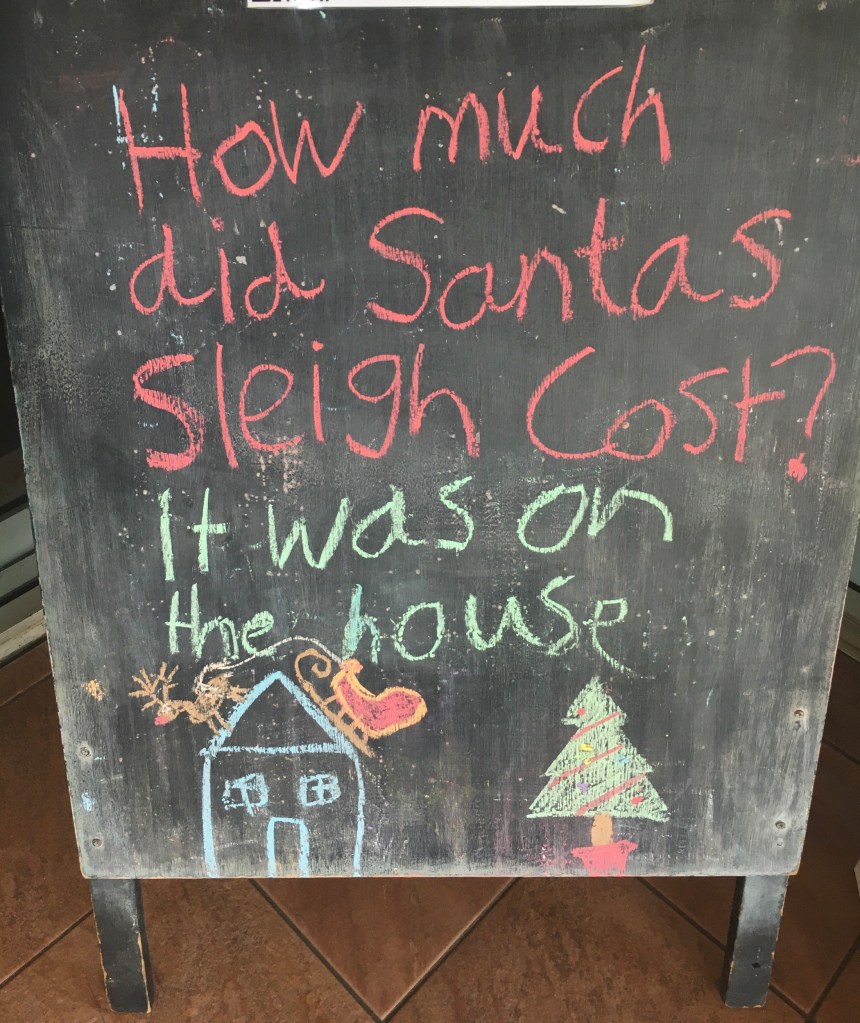 How much
did Santas
Sleigh Cost?
It was on
the house